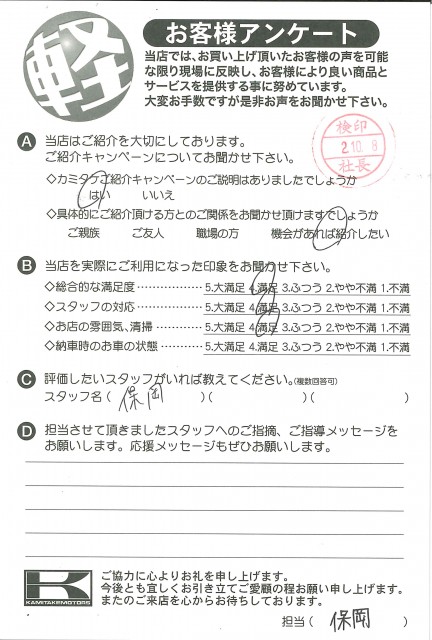 軽
お客様アンケート
当店では、お買い上げ頂いたお客様の声を可能
な限り現場に反映し、お客様により良い商品と
サービスを提供する事に努めています。
大変お手数ですが是非お声をお聞かせ下さい。
A 当店はご紹介を大切にしております。
ご紹介キャンペーンについてお聞かせ下さい。
検印
2.10.8
社長
◇カミタケご紹介キャンペーンのご説明はありましたでしょうか
はい いいえ
◇具体的にご紹介頂ける方とのご関係をお聞かせ頂けますでしょうか
ご親族 ご友人 職場の方 機会があれば紹介したい
B 当店を実際にご利用になった印象をお聞かせ下さい。
◇総合的な満足度 5.大満足 4.満足 3.ふつう 2.やや不満 1.不満
◇スタッフの対応 5.大満足 4.満足 3.ふつう 2.やや不満 1.不満
◇お店の雰囲気、清掃 5.大満足 4.満足 3.ふつう 2.やや不満 1.不満
◇納車時のお車の状態 5.大満足 4.満足 3.ふつう 2.やや不満 1.不満
C 評価したいスタッフがいれば教えてください。(複数回答可)
スタッフ名( 保岡 )( )( )
D 担当させて頂きましたスタッフへのご指摘、ご指導メッセージを
お願いします。応援メッセージもぜひお願いします。
K
KAMITAKEMOTORS
ご協力に心よりお礼を申し上げます。
今後とも宜しくお引き立てご愛顧の程お願い申し上げます。
またのご来店を心からお待ちしております。
担当( 保岡 )